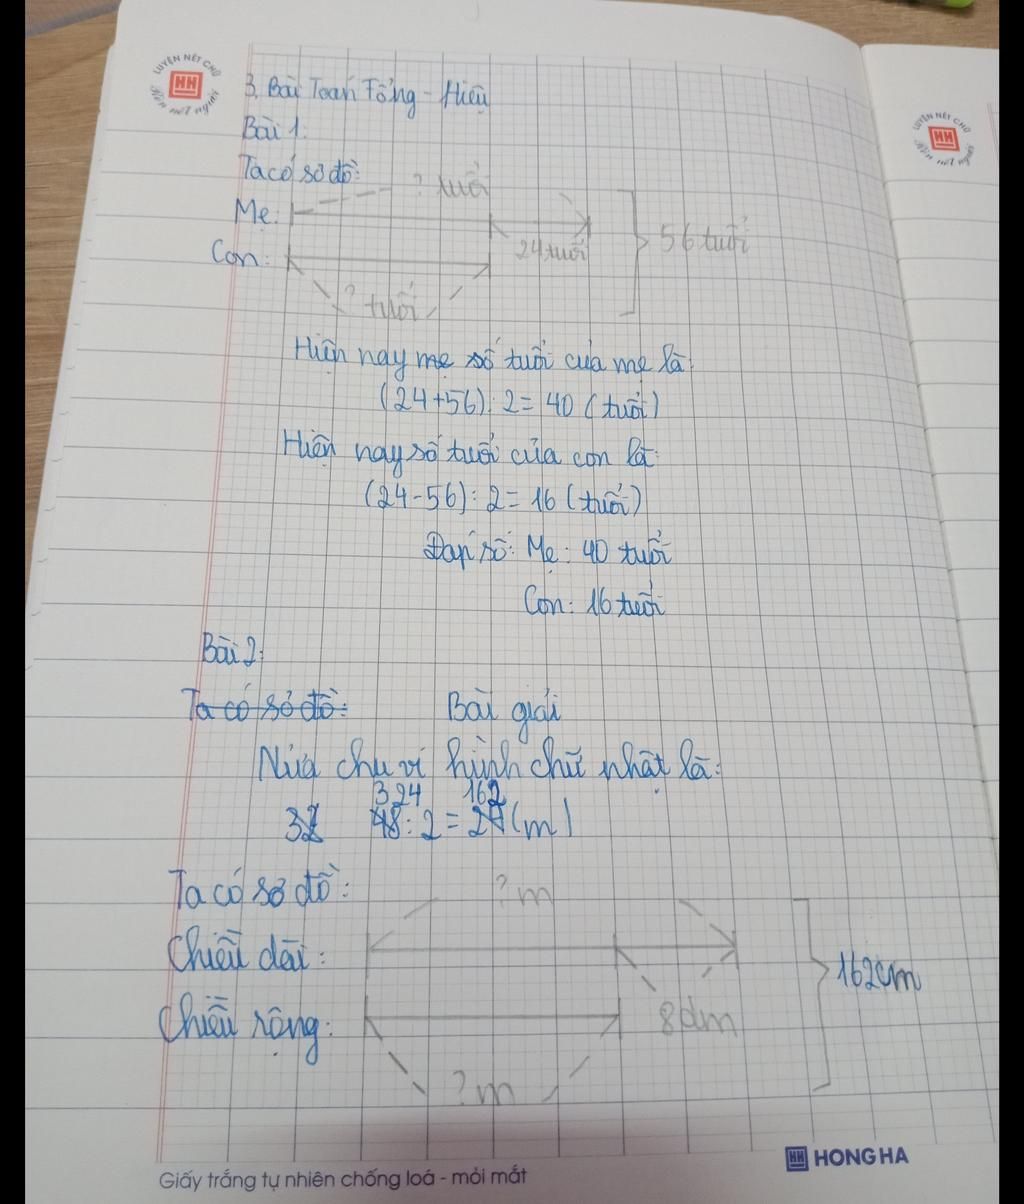 LUYỆN NÉT CHỮ
HH
Rèn nết người
LUYỆN NÉT CHỮ
HH
Rèn nết người
3. Bài Toán Tổng - Hiệu
Bài 1.
Ta có sơ đồ:
? tuổi
Mẹ:
24 tuổi
56 tuổi
Con:
? tuổi
Hiện nay mẹ số tuổi của mẹ là:
(24+56): 2= 40 (tuổi)
Hiện nay số tuổi của con là:
(24-56): 2= 16 (tuổi)
Đáp số: Mẹ: 40 tuổi
Con: 16 tuổi
Bài 2:
Ta có sơ đồ:
Bài giải
Nửa chu vi hình chữ nhật là:
324 162
48: 2 = (m)
Ta có sơ đồ:
? m
Chiều dài:
162cm
Chiều rộng:
8dm
? m
Giấy trắng tự nhiên chống loá - mỏi mắt
HH HONG HA